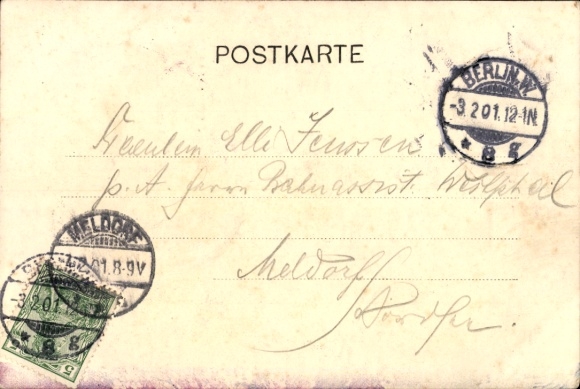 POSTKARTE
BERLIN.W.
-3.2 01.12-1N.
* 8 g
Fräulein Elli Jenssen
p. A. Herrn Bahnassist. Westphal
MELDORF
.2.01.8-9V
Meldorf
3.2 01.
* 8 g
5